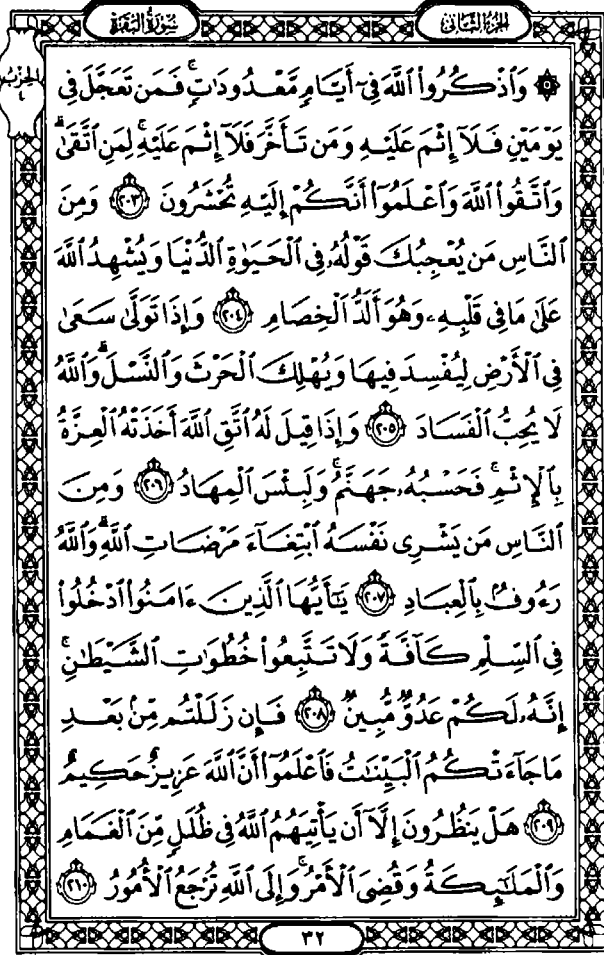 الجزء الثاني
سورة البقرة
الحزب
٤
۞ وَٱذْكُرُوا۟ ٱللَّهَ فِىٓ أَيَّامٍ مَّعْدُودَٰتٍۚ فَمَن تَعَجَّلَ فِى
يَوْمَيْنِ فَلَآ إِثْمَ عَلَيْهِ وَمَن تَأَخَّرَ فَلَآ إِثْمَ عَلَيْهِۚ لِمَنِ ٱتَّقَىٰۗ
وَٱتَّقُوا۟ ٱللَّهَ وَٱعْلَمُوٓا۟ أَنَّكُمْ إِلَيْهِ تُحْشَرُونَ ﴿٢٠٣﴾ وَمِنَ
ٱلنَّاسِ مَن يُعْجِبُكَ قَوْلُهُۥ فِى ٱلْحَيَوٰةِ ٱلدُّنْيَا وَيُشْهِدُ ٱللَّهَ
عَلَىٰ مَا فِى قَلْبِهِۦ وَهُوَ أَلَدُّ ٱلْخِصَامِ ﴿٢٠٤﴾ وَإِذَا تَوَلَّىٰ سَعَىٰ
فِى ٱلْأَرْضِ لِيُفْسِدَ فِيهَا وَيُهْلِكَ ٱلْحَرْثَ وَٱلنَّسْلَۗ وَٱللَّهُ
لَا يُحِبُّ ٱلْفَسَادَ ﴿٢٠٥﴾ وَإِذَا قِيلَ لَهُ ٱتَّقِ ٱللَّهَ أَخَذَتْهُ ٱلْعِزَّةُ
بِٱلْإِثْمِۚ فَحَسْبُهُۥ جَهَنَّمُۚ وَلَبِئْسَ ٱلْمِهَادُ ﴿٢٠٦﴾ وَمِنَ
ٱلنَّاسِ مَن يَشْرِى نَفْسَهُ ٱبْتِغَآءَ مَرْضَاتِ ٱللَّهِۗ وَٱللَّهُ
رَءُوفٌۢ بِٱلْعِبَادِ ﴿٢٠٧﴾ يَٰٓأَيُّهَا ٱلَّذِينَ ءَامَنُوا۟ ٱدْخُلُوا۟
فِى ٱلسِّلْمِ كَآفَّةً وَلَا تَتَّبِعُوا۟ خُطُوَٰتِ ٱلشَّيْطَٰنِۚ
إِنَّهُۥ لَكُمْ عَدُوٌّ مُّبِينٌ ﴿٢٠٨﴾ فَإِن زَلَلْتُم مِّنۢ بَعْدِ
مَا جَآءَتْكُمُ ٱلْبَيِّنَٰتُ فَٱعْلَمُوٓا۟ أَنَّ ٱللَّهَ عَزِيزٌ حَكِيمٌ
﴿٢٠٩﴾ هَلْ يَنظُرُونَ إِلَّآ أَن يَأْتِيَهُمُ ٱللَّهُ فِى ظُلَلٍ مِّنَ ٱلْغَمَامِ
وَٱلْمَلَٰٓئِكَةُ وَقُضِىَ ٱلْأَمْرُۚ وَإِلَى ٱللَّهِ تُرْجَعُ ٱلْأُمُورُ ﴿٢١٠﴾
٣٢